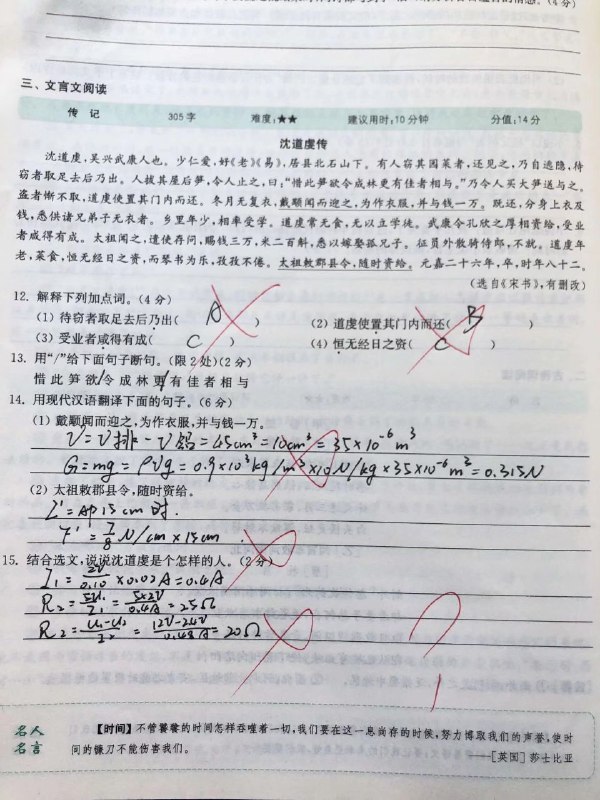 (4分)
三、文言文阅读
传 记 305字 难度:★★ 建议用时:10分钟 分值:14分
沈道虔传
沈道虔,吴兴武康人也。少仁爱,好《老》《易》,居县北石山下。有人窃其园菜者,还见之,乃自逃隐,待
窃者取足去后乃出。人拔其屋后笋,令人止之,曰:“惜此笋欲令成林更有佳者相与。”乃令人买大笋送与之。
盗者惭不取,道虔使置其门内而还。冬月无复衣,戴颙闻而迎之,为作衣服,并与钱一万。既还,分身上衣及
钱,悉供诸兄弟子无衣者。乡里年少,相率受学。道虔常无食,无以立学徒。武康令孔欣之厚相资给,受业
者咸得有成。太祖闻之,遣使存问,赐钱三万,米二百斛,悉以嫁娶孤兄子。征员外散骑侍郎,不就。道虔年
老,菜食,恒无经日之资,而琴书为乐,孜孜不倦。太祖敕郡县令,随时资给。元嘉二十六年,卒,时年八十二。
(选自《宋书》,有删改)
12. 解释下列加点词。(4分)
(1) 待窃者取足去后乃出( A ) (2) 道虔使置其门内而还( B )
(3) 受业者咸得有成( C ) (4) 恒无经日之资( C )
13. 用“/”给下面句子断句。(限2处)(2分)
惜此笋欲/令成林更/有佳者相与
14. 用现代汉语翻译下面的句子。(6分)
(1) 戴颙闻而迎之,为作衣服,并与钱一万。
V=V排-V铝=45cm³=10cm³=35×10⁻⁶m³
G=mg=ρVg=0.9×10³kg/m³×10N/kg×35×10⁻⁶m³=0.315N
(2) 太祖敕郡县令,随时资给。
15cm时.
F'=7/8N/cm×15cm
15. 结合选文,说说沈道虔是个怎样的人。(2分)
I₁=2V/0.10×0.02A=0.4A
R₂=5U₁/I₁=5×2V/0.4A=25Ω
R₂=U₁-U₂/I₂=12V-2.4V/0.48A=20Ω
名人 【时间】不管饕餮的时间怎样吞噬着一切,我们要在这一息尚存的时候,努力博取我们的声誉,使时
名言 间的镰刀不能伤害我们。 ——[英国]莎士比亚